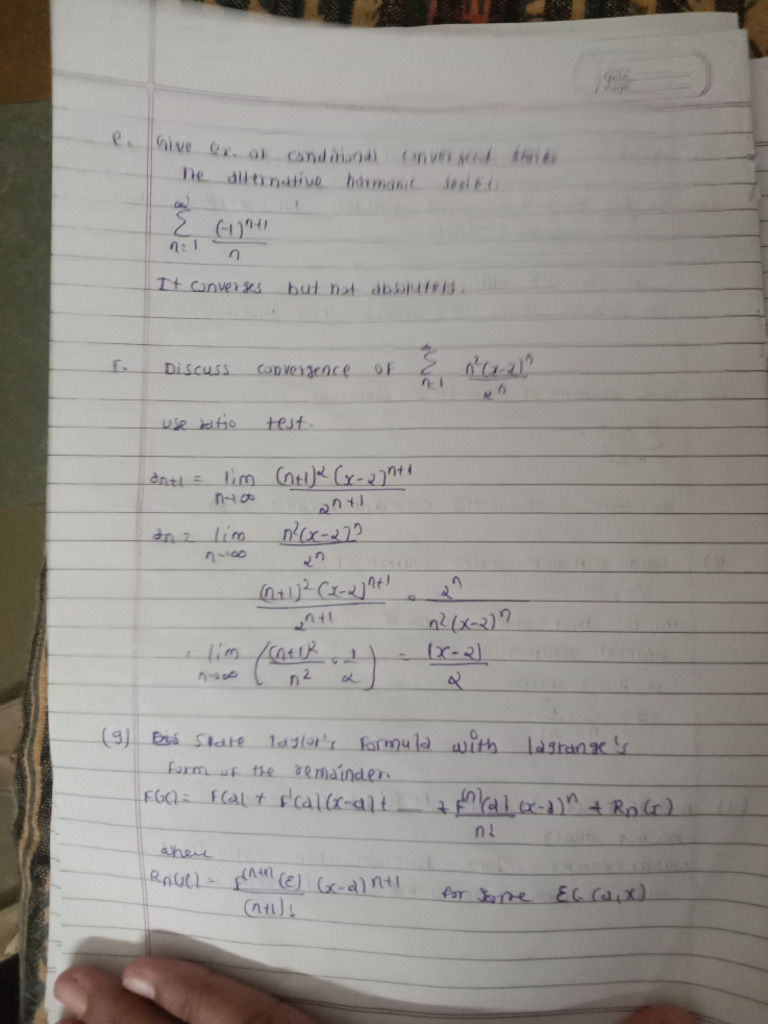 e. Give ex. of conditional convergent series
The alternative harmonic series.
∞
Σ (-1)^{n+1}
n=1 n
It converges but not absolutely.
F. Discuss convergence of Σ_{n=1}^{∞} n²(x-2)^n / 2^n
use ratio test.
an+1 = lim_{n→∞} (n+1)² (x-2)^{n+1} / 2^{n+1}
an = lim_{n→∞} n²(x-2)^n / 2^n
(n+1)² (x-2)^{n+1} / 2^{n+1} · 2^n / n²(x-2)^n
= lim_{n→∞} ((n+1)² / n² · 1 / 2) = |x-2| / 2
(g) State Taylor's formula with lagrange's
form of the remainder.
F(x) = F(a) + F'(a)(x-a) + — + F^{(n)}(a) (x-a)^n / n! + Rn(x)
where
Rn(x) = F^{(n+1)}(ε) (x-a)^{n+1} / (n+1)! for some ε∈(a,x)